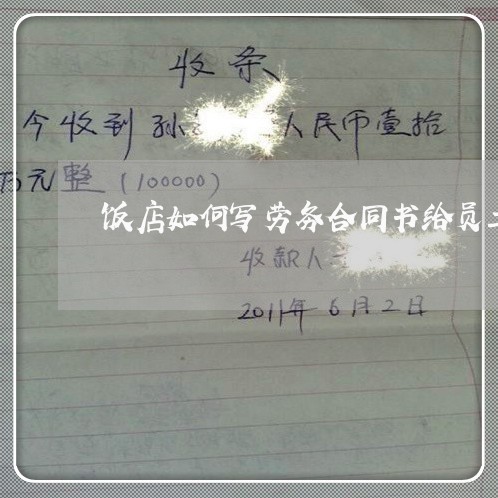 收条
今收到孙 人民币壹拾
万元整(100000)
饭店如何写劳务合同书给员
收款人
2011年6月2日